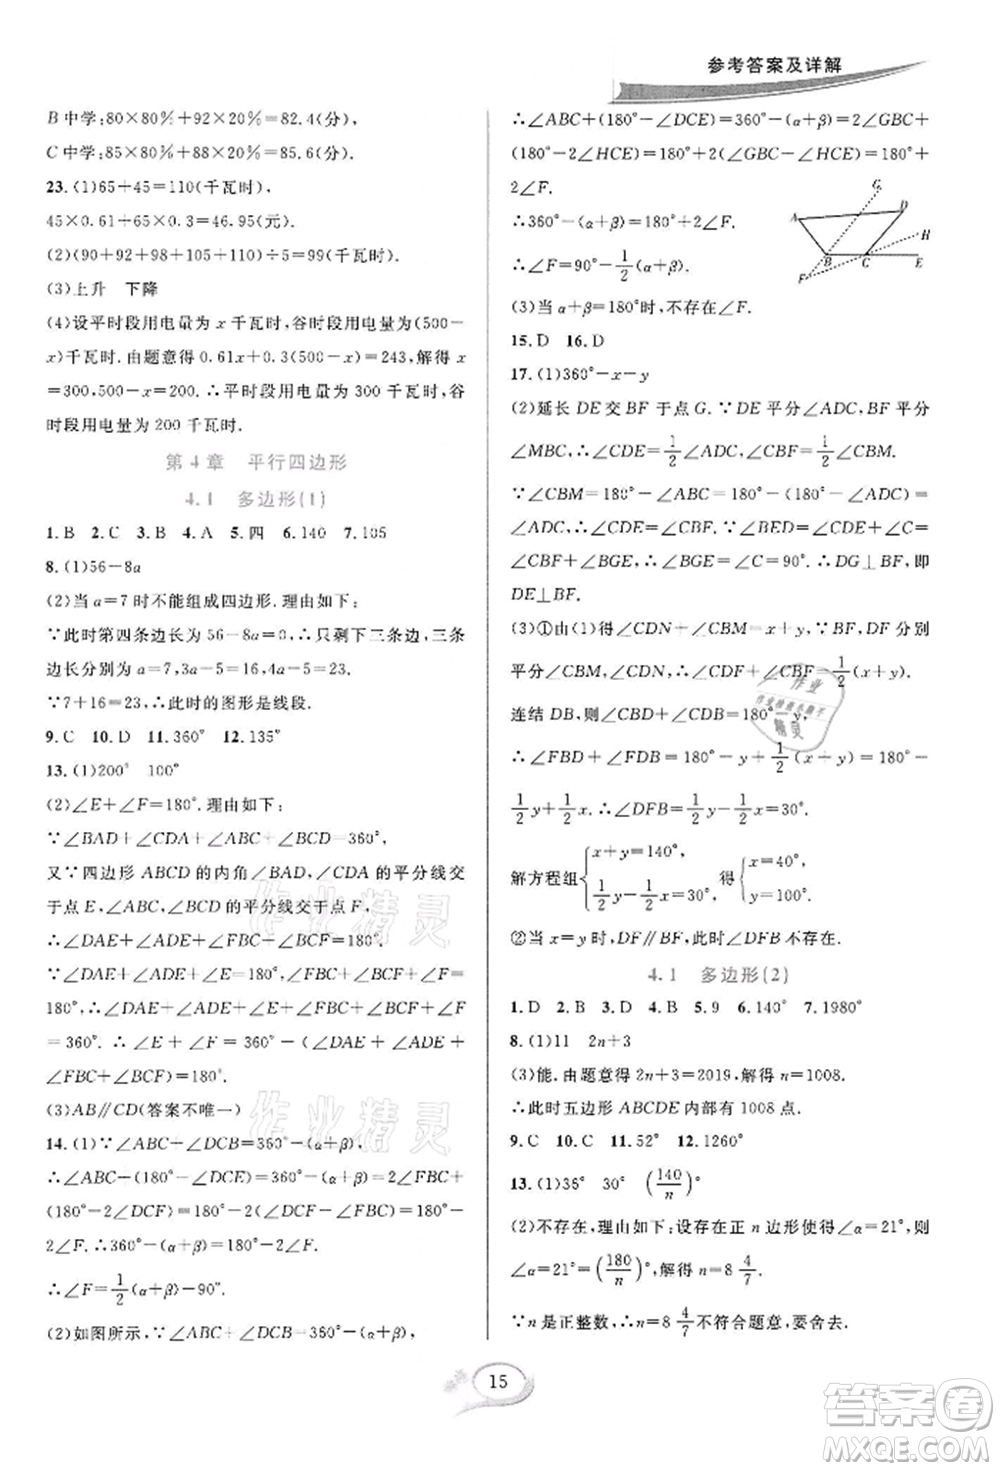 参考答案及详解
B 中学:80×80%+92×20%=82.4(分).
C 中学:85×80%+88×20%=85.6(分).
23.(1)65+45=110(千瓦时),
45×0.61+65×0.3=46.95(元).
(2)(90+92+98+105+110)÷5=99(千瓦时).
(3)上升 下降
(4)设平时段用电量为 x 千瓦时,谷时段用电量为(500-
x)千瓦时.由题意得 0.61x+0.3(500-x)=243,解得 x
=300,500-x=200.∴平时段用电量为 300 千瓦时,谷
时段用电量为 200 千瓦时.
第 4 章 平行四边形
4.1 多边形(1)
1.B 2.C 3.B 4.A 5.四 6.140 7.105
8.(1)56-8a
(2)当 a=7 时不能组成四边形.理由如下:
∵此时第四条边长为 56-8a=0,∴只剩下三条边,三条
边长分别为 a=7,3a-5=16,4a-5=23.
∵7+16=23,∴此时的图形是线段.
9.C 10.D 11.360° 12.135°
13.(1)200° 100°
(2)∠E+∠F=180°.理由如下:
∵∠BAD+∠CDA+∠ABC+∠BCD=360°,
又∵四边形 ABCD 的内角∠BAD,∠CDA 的平分线交
于点 E,∠ABC,∠BCD 的平分线交于点 F,
∴∠DAE+∠ADE+∠FBC+∠BCF=180°.
∵∠DAE+∠ADE+∠E=180°,∠FBC+∠BCF+∠F
=180°,∴∠DAE+∠ADE+∠E+∠FBC+∠BCF+∠F
=360°.∴∠E+∠F=360°-(∠DAE+∠ADE+∠FBC
+∠BCF)=180°.
(3)AB∥CD(答案不唯一)
14.(1)∵∠ABC+∠DCB=360°-(α+β),
∴∠ABC+(180°-∠DCE)=360°-(α+β)=2∠FBC+
(180°-2∠DCF)=180°-2(∠DCF-∠FBC)=180°-
2∠F.∴360°-(α+β)=180°-2∠F.
∴∠F=1/2(α+β)-90°.
(2)如图所示,∵∠ABC+∠DCB=360°-(α+β),
∴∠ABC+(180°-∠DCE)=360°-(α+β)=2∠GBC+
(180°-2∠HCE)=180°+2(∠GBC-∠HCE)=180°+
2∠F.
∴360°-(α+β)=180°+2∠F.
∴∠F=90°-1/2(α+β).
G A D H B C E F
(3)当 α+β=180°时,不存在∠F.
15.D 16.D
17.(1)360°-x-y
(2)延长 DE 交 BF 于点 G.∵DE 平分∠ADC,BF 平分
∠MBC,∴∠CDE=1/2∠ADC,∠CBF=1/2∠CBM.
∵∠CBM=180°-∠ABC=180°-(180°-∠ADC)=
∠ADC,∴∠CDE=∠CBF.∵∠BGE+∠C=
∠CBF+∠BGE,∴∠BGE=∠C=90°.∴DG⊥BF,即
DE⊥BF.
(3)①由(1)得∠CDN+∠CBM=x+y,∵BF,DF 分别
平分∠CBM,∠CDN,∴∠CDF+∠CBF=1/2(x+y).
连结 DB,则∠CBD+∠CDB=180°-y,
∴∠FBD+∠FDB=180°-y+1/2(x+y)=180°-
1/2y+1/2x.∴∠DFB=1/2y-1/2x=30°.
解方程组{x+y=140°, 1/2y-1/2x=30°, 得{x=40°, y=100°.
②当 x=y 时,DF∥BF,此时∠DFB 不存在.
4.1 多边形(2)
1.D 2.B 3.D 4.B 5.9 6.140° 7.1980°
8.(1)11 2n+3
(3)能.由题意可得 2n+3=2019,解得 n=1008.
∴此时五边形 ABCDE 内部有 1008 点.
9.C 10.C 11.52° 12.1260°
13.(1)36° 30° (140/n)°
(2)不存在,理由如下:设存在正 n 边形使得∠α=21°,则
∠α=21°=(180/n)°,解得 n=8 4/7.
∵n 是正整数,∴n=8 4/7 不符合题意,要舍去.
15
作业精灵
作业精灵
答案圈
MXQE.COM